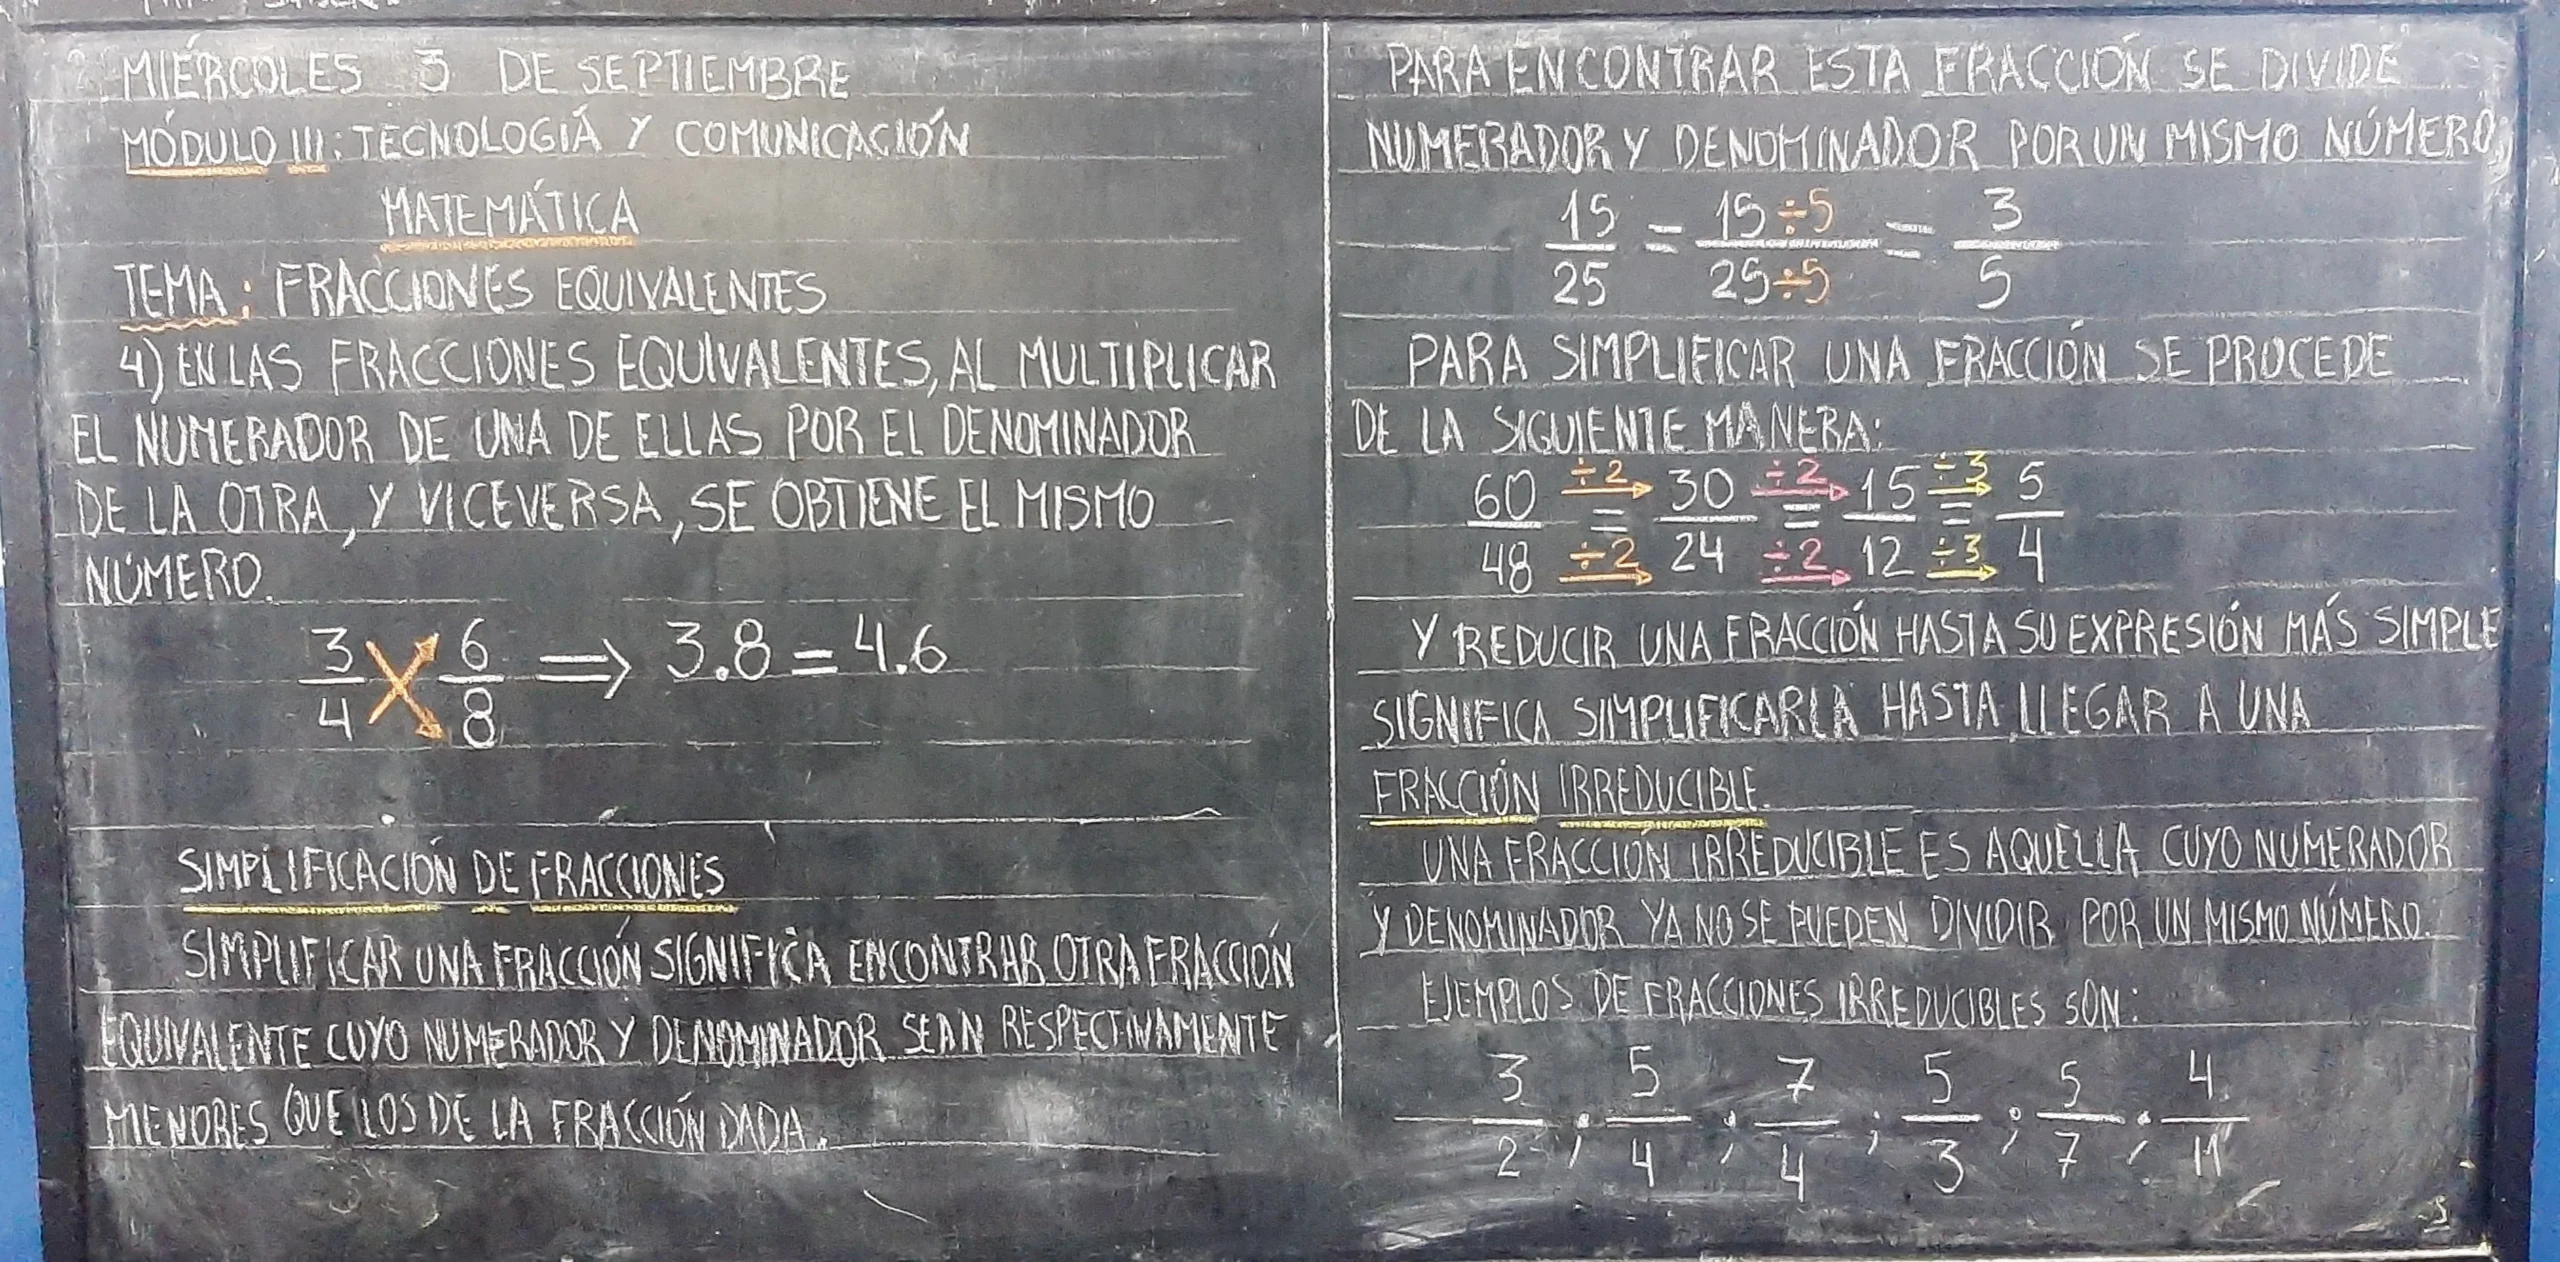 MIÉRCOLES 3 DE SEPTIEMBRE
MÓDULO III: TECNOLOGIÁ Y COMUNICACIÓN
MATEMÁTICA
TEMA: FRACCIONES EQUIVALENTES
4) EN LAS FRACCIONES EQUIVALENTES, AL MULTIPLICAR
EL NUMERADOR DE UNA DE ELLAS POR EL DENOMINADOR
DE LA OTRA, Y VICEVERSA, SE OBTIENE EL MISMO
NÚMERO.
3/4 X 6/8 ⇒ 3.8 = 4.6
SIMPLIFICACIÓN DE FRACCIONES
SIMPLIFICAR UNA FRACCIÓN SIGNIFICA ENCONTRAR OTRA FRACCIÓN
EQUIVALENTE CUYO NUMERADOR Y DENOMINADOR SEAN RESPECTIVAMENTE
MENORES QUE LOS DE LA FRACCIÓN DADA.
PARA ENCONTRAR ESTA FRACCIÓN SE DIVIDE
NUMERADOR Y DENOMINADOR POR UN MISMO NÚMERO;
15/25 = 15÷5/25÷5 = 3/5
PARA SIMPLIFICAR UNA FRACCIÓN SE PROCEDE
DE LA SIGUIENTE MANERA:
÷2 ÷2 ÷3
60/48 = 30/24 = 15/12 = 5/4
÷2 ÷2 ÷3
Y REDUCIR UNA FRACCIÓN HASTA SU EXPRESIÓN MÁS SIMPLE
SIGNIFICA SIMPLIFICARLA HASTA LLEGAR A UNA
FRACCIÓN IRREDUCIBLE.
UNA FRACCIÓN IRREDUCIBLE ES AQUELLA CUYO NUMERADOR
Y DENOMINADOR YA NO SE PUEDEN DIVIDIR POR UN MISMO NÚMERO.
EJEMPLOS DE FRACCIONES IRREDUCIBLES SON:
3/2 ; 5/4 ; 7/4 ; 5/3 ; 5/7 ; 4/11